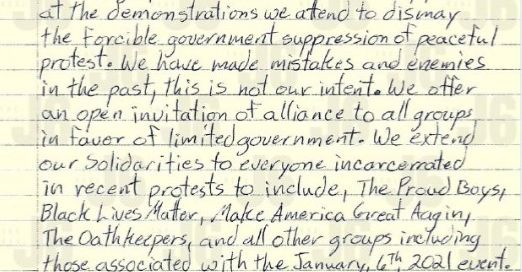 at the demonstrations we attend to dismay
the forcible government suppression of peaceful
protest. We have made mistakes and enemies
in the past, this is not our intent. We offer
an open invitation of alliance to all groups
in favor of limited government. We extend
our Solidarities to everyone incarcerrated
in recent protests to include, The Proud Boys,
Black Lives Matter, Make America Great Aagin,
The Oathkeepers, and all other groups including
those associated with the January, 6th 2021 event.